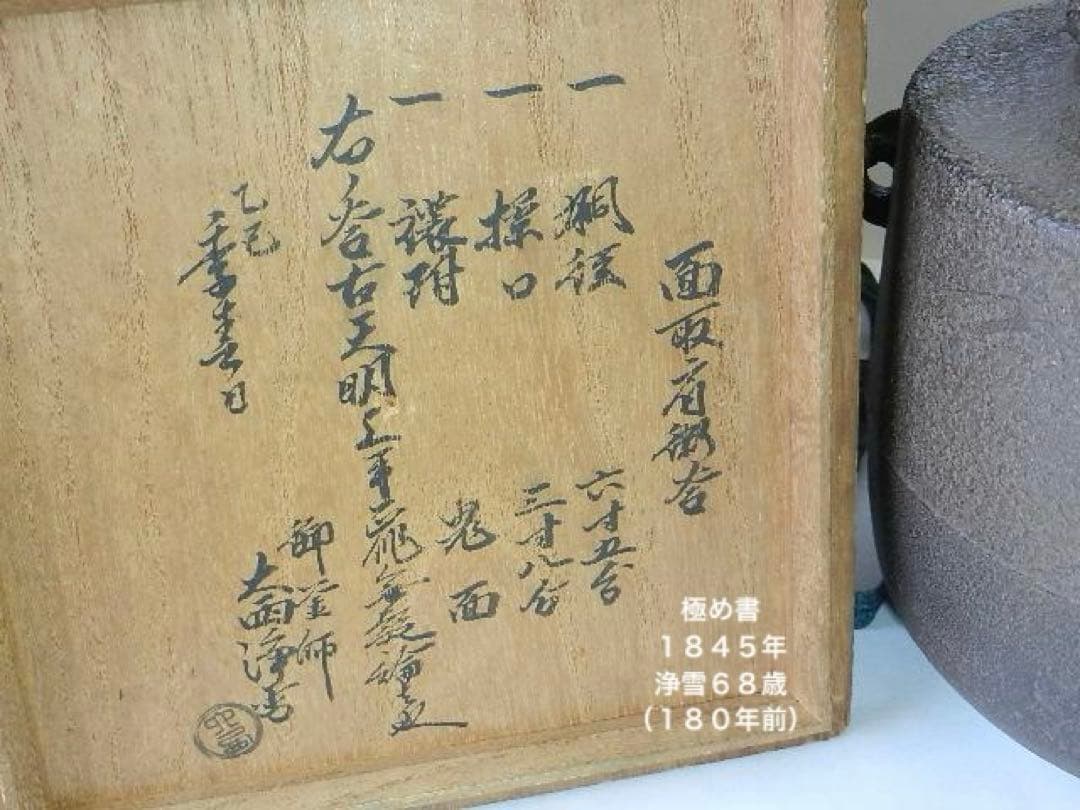 面取肩衝釜
一 胴径 六寸五分
一 操口 三寸八分
一 鐶附 鬼面
右ノ釜古天明上手無疑
乙巳
季春日
御釜師
大西浄雪
極め書
1845年
浄雪68歳
(180年前)